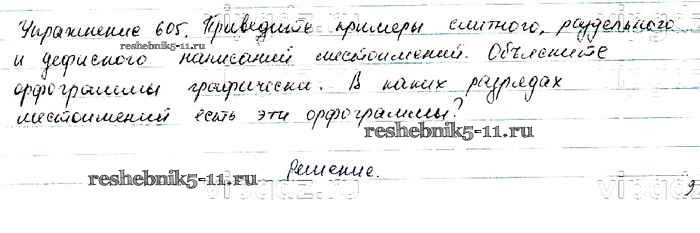 Упражнение 605. Приведите примеры слитного, раздельного
reshebnik5-11.ru
и дефисного написаний местоимений. Объясните
орфограммы графически. В каких разрядах
местоимений есть эти орфограммы?
reshebnik5-11.ru
Решение.
reshebnik5-11.ru